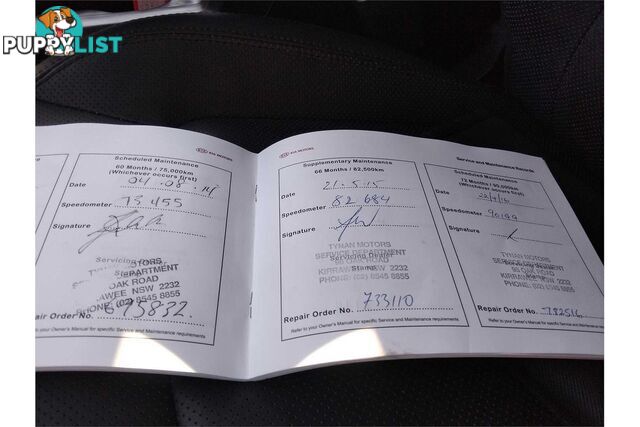 PUPPYLIST
KIA MOTORS
Scheduled Maintenance
60 Months / 75,000km
(Whichever occurs first)
Date 04.08.14
Speedometer 75455
Signature
Servicing Dealer
TYNAN MOTORS
SERVICE DEPARTMENT
OAK ROAD
KIRRAWEE NSW 2232
PHONE: (02) 8545 8855
Repair Order No. 695832
Refer to your Owner's Manual for specific Service and Maintenance requirements
KIA MOTORS
Supplementary Maintenance
66 Months / 82,500km
Date 21.5.15
Speedometer 82684
Signature
TYNAN MOTORS
SERVICE DEPARTMENT
Servicing Dealer
OAK ROAD
Stamp
KIRRAWEE NSW 2232
PHONE: (02) 8545 8855
Repair Order No. 733110
Refer to your Owner's Manual for specific Service and Maintenance requirements
Service and Maintenance Records
Scheduled Maintenance
72 Months / 90,000km
(Whichever occurs first)
Date
Speedometer
Signature
TYNAN MOTORS
SERVICE DEPARTMENT
OAK ROAD
KIRRAWEE NSW 2232
PHONE: (02) 8545 8855
Repair Order No. 782516
Refer to your Owner's Manual for specific Service and Maintenance requirements